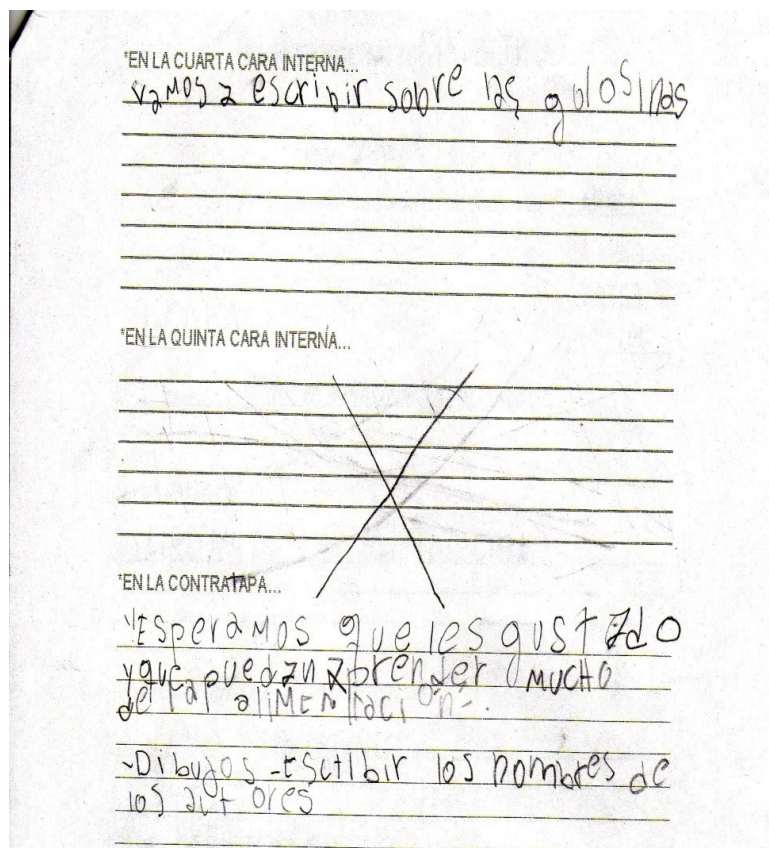 *EN LA CUARTA CARA INTERNA...
vamos a escribir sobre las golosinas
*EN LA QUINTA CARA INTERNA...
*EN LA CONTRATAPA...
"Esperamos que les gustado
y que puedan aprender mucho
de la alimentración".
-Dibujos -Escribir los nombres de
los autores